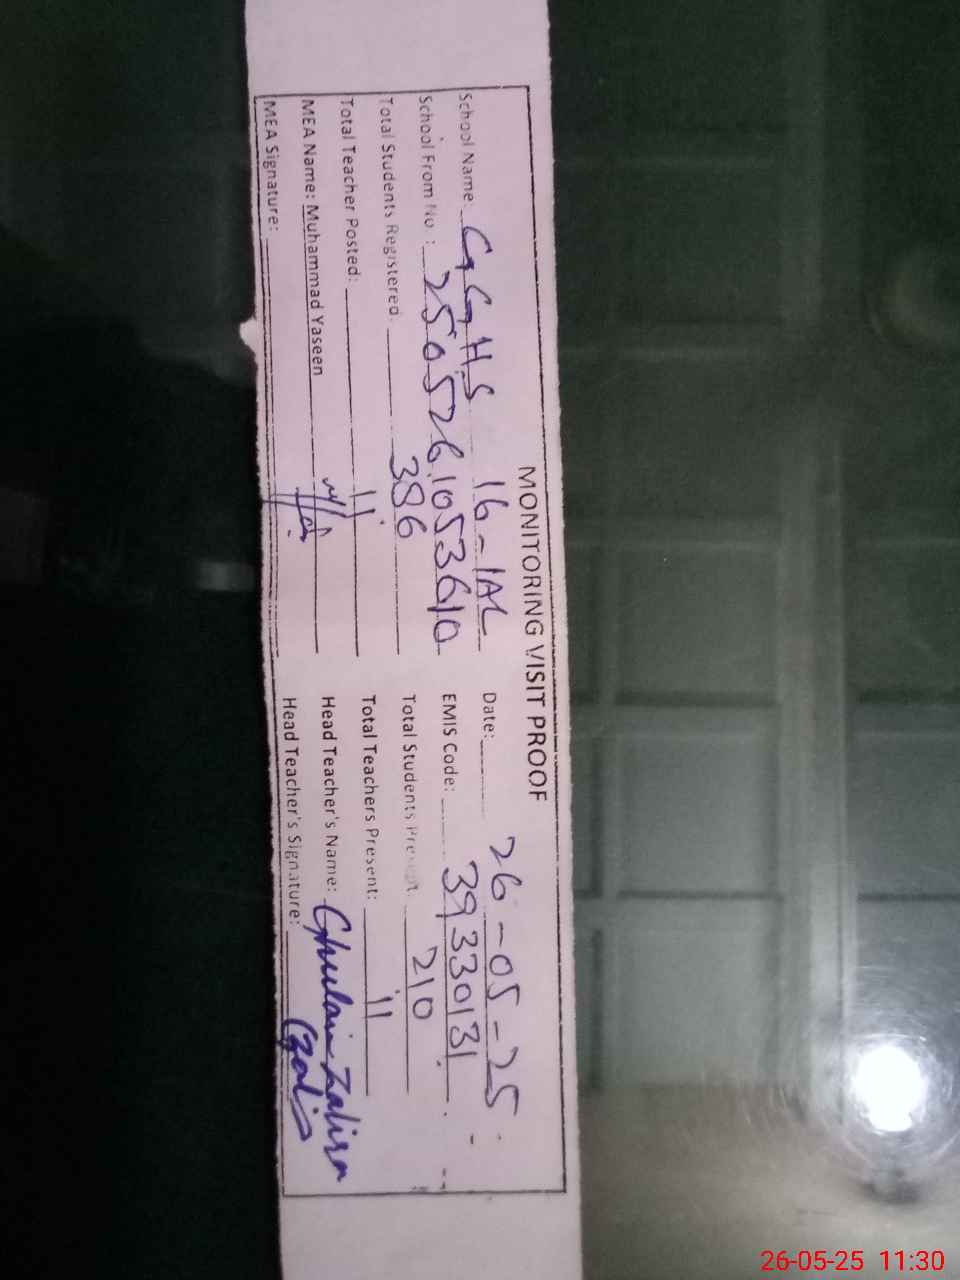 MONITORING VISIT PROOF
School Name: GGHS 16-1AL Date: 26-05-25
School From No. : 2505261053610 EMIS Code: 39330131
Total Students Registered: 386 Total Students Present: 210
Total Teacher Posted: 11 Total Teachers Present: 11
MEA Name: Muhammad Yaseen Head Teacher's Name: Ghulam
MEA Signature: Head Teacher's Signature:
26-05-25 11:30